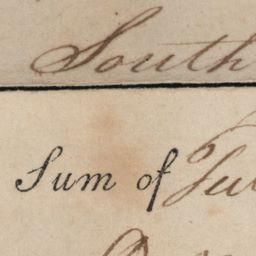 South
Sum of